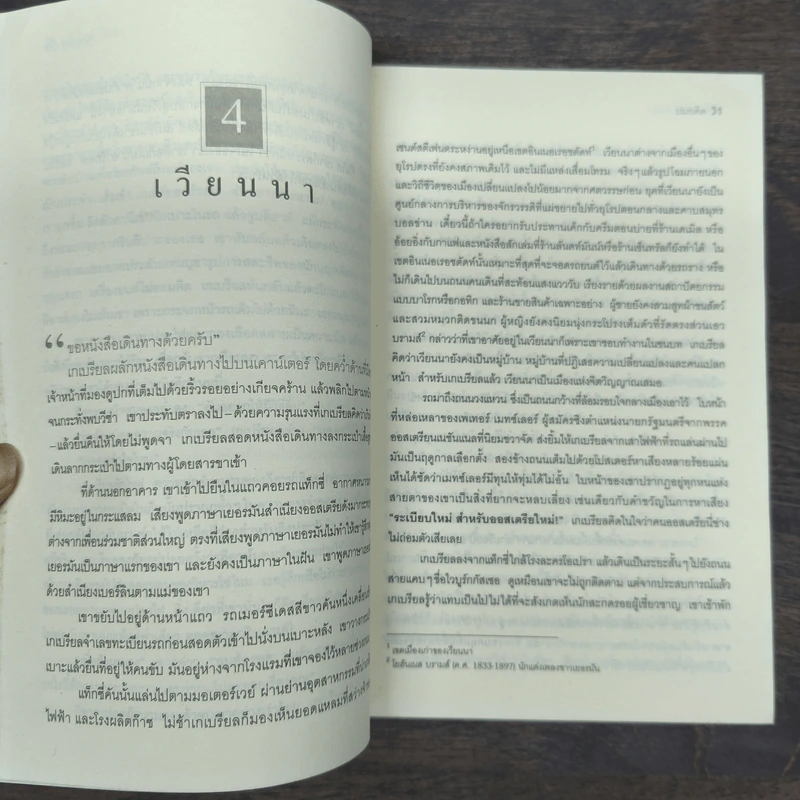 4
เวียนนา
“ขอหนังสือเดินทางด้วยครับ”
เกเบรียลผลักหนังสือเดินทางไปบนเคาน์เตอร์ โดยคว่ำด้านที่มี
เจ้าหน้าที่มองดูปกที่เต็มไปด้วยริ้วรอยอย่างเกียจคร้าน แล้วพลิกไปตาม
จนกระทั่งพบวีซ่า เขาประทับตราลงไป–ด้วยความรุนแรงที่เกเบรียลคิดว่า
–แล้วยื่นคืนให้โดยไม่พูดจา เกเบรียลสอดหนังสือเดินทางลงกระเป๋า
เดินลากกระเป๋าไปตามทางผู้โดยสารขาเข้า
ที่ด้านนอกอาคาร เขาเข้าไปยืนในแถวคอยรถแท็กซี่ อากาศหนาว
มีหิมะอยู่ในกระแสลม เสียงพูดภาษาเยอรมันสำเนียงออสเตรียดังมา
ต่างจากเพื่อนร่วมชาติส่วนใหญ่ ตรงที่เสียงพูดภาษาเยอรมันไม่ทำให้เขา
เยอรมันเป็นภาษาแรกของเขา และยังคงเป็นภาษาในฝัน เขาพูดภาษา
ด้วยสำเนียงเบอร์ลินตามแม่ของเขา
เขาขยับไปอยู่ด้านหน้าแถว รถเมอร์ซีเดสสีขาวคันหนึ่งเคลื่อน
เกเบรียลจำเลขทะเบียนรถก่อนสอดตัวเข้าไปนั่งบนเบาะหลัง เขาวาง
เบาะแล้วยื่นที่อยู่ให้คนขับ มันอยู่ห่างจากโรงแรมที่เขาจองไว้หลายช่วง
แท็กซี่คันนั้นแล่นไปตามมอเตอร์เวย์ ผ่านย่านอุตสาหกรรมที่
ไฟฟ้า และโรงผลิตก๊าซ ไม่ช้าเกเบรียลก็มองเห็นยอดแหลมที่สว่าง
31
เซนต์สตีเฟนตระหง่านอยู่เหนือเขตอินเนอเรอชตัดท์¹ เวียนนาต่างจากเมืองอื่นๆของ
ยุโรปตรงที่ยังคงสภาพเดิมไว้ และไม่มีแหล่งเสื่อมโทรม จริงๆแล้วรูปโฉมภายนอก
และวิถีชีวิตของเมืองเปลี่ยนแปลงไปน้อยมากจากศตวรรษก่อน ยุคที่เวียนนายังเป็น
ศูนย์กลางการบริหารของจักรวรรดิที่แผ่ขยายไปทั่วยุโรปตอนกลางและคาบสมุทร
บอลข่าน เดี๋ยวนี้ถ้าใครอยากรับประทานเค้กกับครีมตอนบ่ายที่ร้านเดเม็ล หรือ
อ้อยอิ่งกับกาแฟและหนังสือสักเล่มที่ร้านลันดท์มันน์หรือร้านเซ็นทรัลก็ยังทำได้ ใน
เขตอินเนอเรอชตัดท์นั้นเหมาะที่สุดที่จะจอดรถยนต์ไว้แล้วเดินทางด้วยรถราง หรือ
ไม่ก็เดินไปบนถนนคนเดินที่สะท้อนแสงแวววับ เรียงรายด้วยผลงานสถาปัตยกรรม
แบบบาโรกหรือกอทิก และร้านขายสินค้าเฉพาะอย่าง ผู้ชายยังคงสวมสูทผ้าขนสัตว์
และสวมหมวกติดขนนก ผู้หญิงยังคงนิยมนุ่งกระโปรงเต็มตัวที่รัดตรงส่วนเอว
บรามส์² กล่าวว่าที่เขาอาศัยอยู่ในเวียนนาก็เพราะเขาชอบทำงานในชนบท เกเบรียล
คิดว่าเวียนนายังคงเป็นหมู่บ้าน หมู่บ้านที่ปฏิเสธความเปลี่ยนแปลงและคนแปลก
หน้า สำหรับเกเบรียลแล้ว เวียนนาเป็นเมืองแห่งจิตวิญญาณเสมอ
รถมาถึงถนนวงแหวน ซึ่งเป็นถนนกว้างที่ล้อมรอบใจกลางเมืองเอาไว้ ใบหน้า
ที่หล่อเหลาของเพเทอร์ เมทซ์เลอร์ ผู้สมัครชิงตำแหน่งนายกรัฐมนตรีจากพรรค
ออสเตรียนเนชันแนลที่นิยมขวาจัด ส่งยิ้มให้เกเบรียลจากเสาไฟฟ้าที่รถแล่นผ่านไป
มันเป็นฤดูกาลเลือกตั้ง สองข้างถนนเต็มไปด้วยโปสเตอร์หาเสียงหลายร้อยแผ่น
เห็นได้ชัดว่าเมทซ์เลอร์มีทุนให้ทุ่มได้ไม่อั้น ใบหน้าของเขาปรากฏอยู่ทุกหนแห่ง
สายตาของเขาเป็นสิ่งที่ยากจะหลบเลี่ยง เช่นเดียวกับคำขวัญในการหาเสียง
“ระเบียบใหม่ สำหรับออสเตรียใหม่!” เกเบรียลคิดในใจว่าคนออสเตรียนี่ช่าง
ไม่ถ่อมตัวเสียเลย
เกเบรียลลงจากแท็กซี่ใกล้โรงละครโอเปรา แล้วเดินเป็นระยะสั้นๆไปยังถนน
สายแคบๆชื่อไวบูร์กกัสเซอ ดูเหมือนเขาจะไม่ถูกติดตาม แต่จากประสบการณ์แล้ว
เกเบรียลรู้ว่าแทบเป็นไปไม่ได้ที่จะสังเกตเห็นนักสะกดรอยผู้เชี่ยวชาญ เขาเข้าพัก
¹ เขตเมืองเก่าของเวียนนา
² โยฮันเนส บรามส์ (ค.ศ. 1833-1897) นักแต่งเพลงชาวเยอรมัน